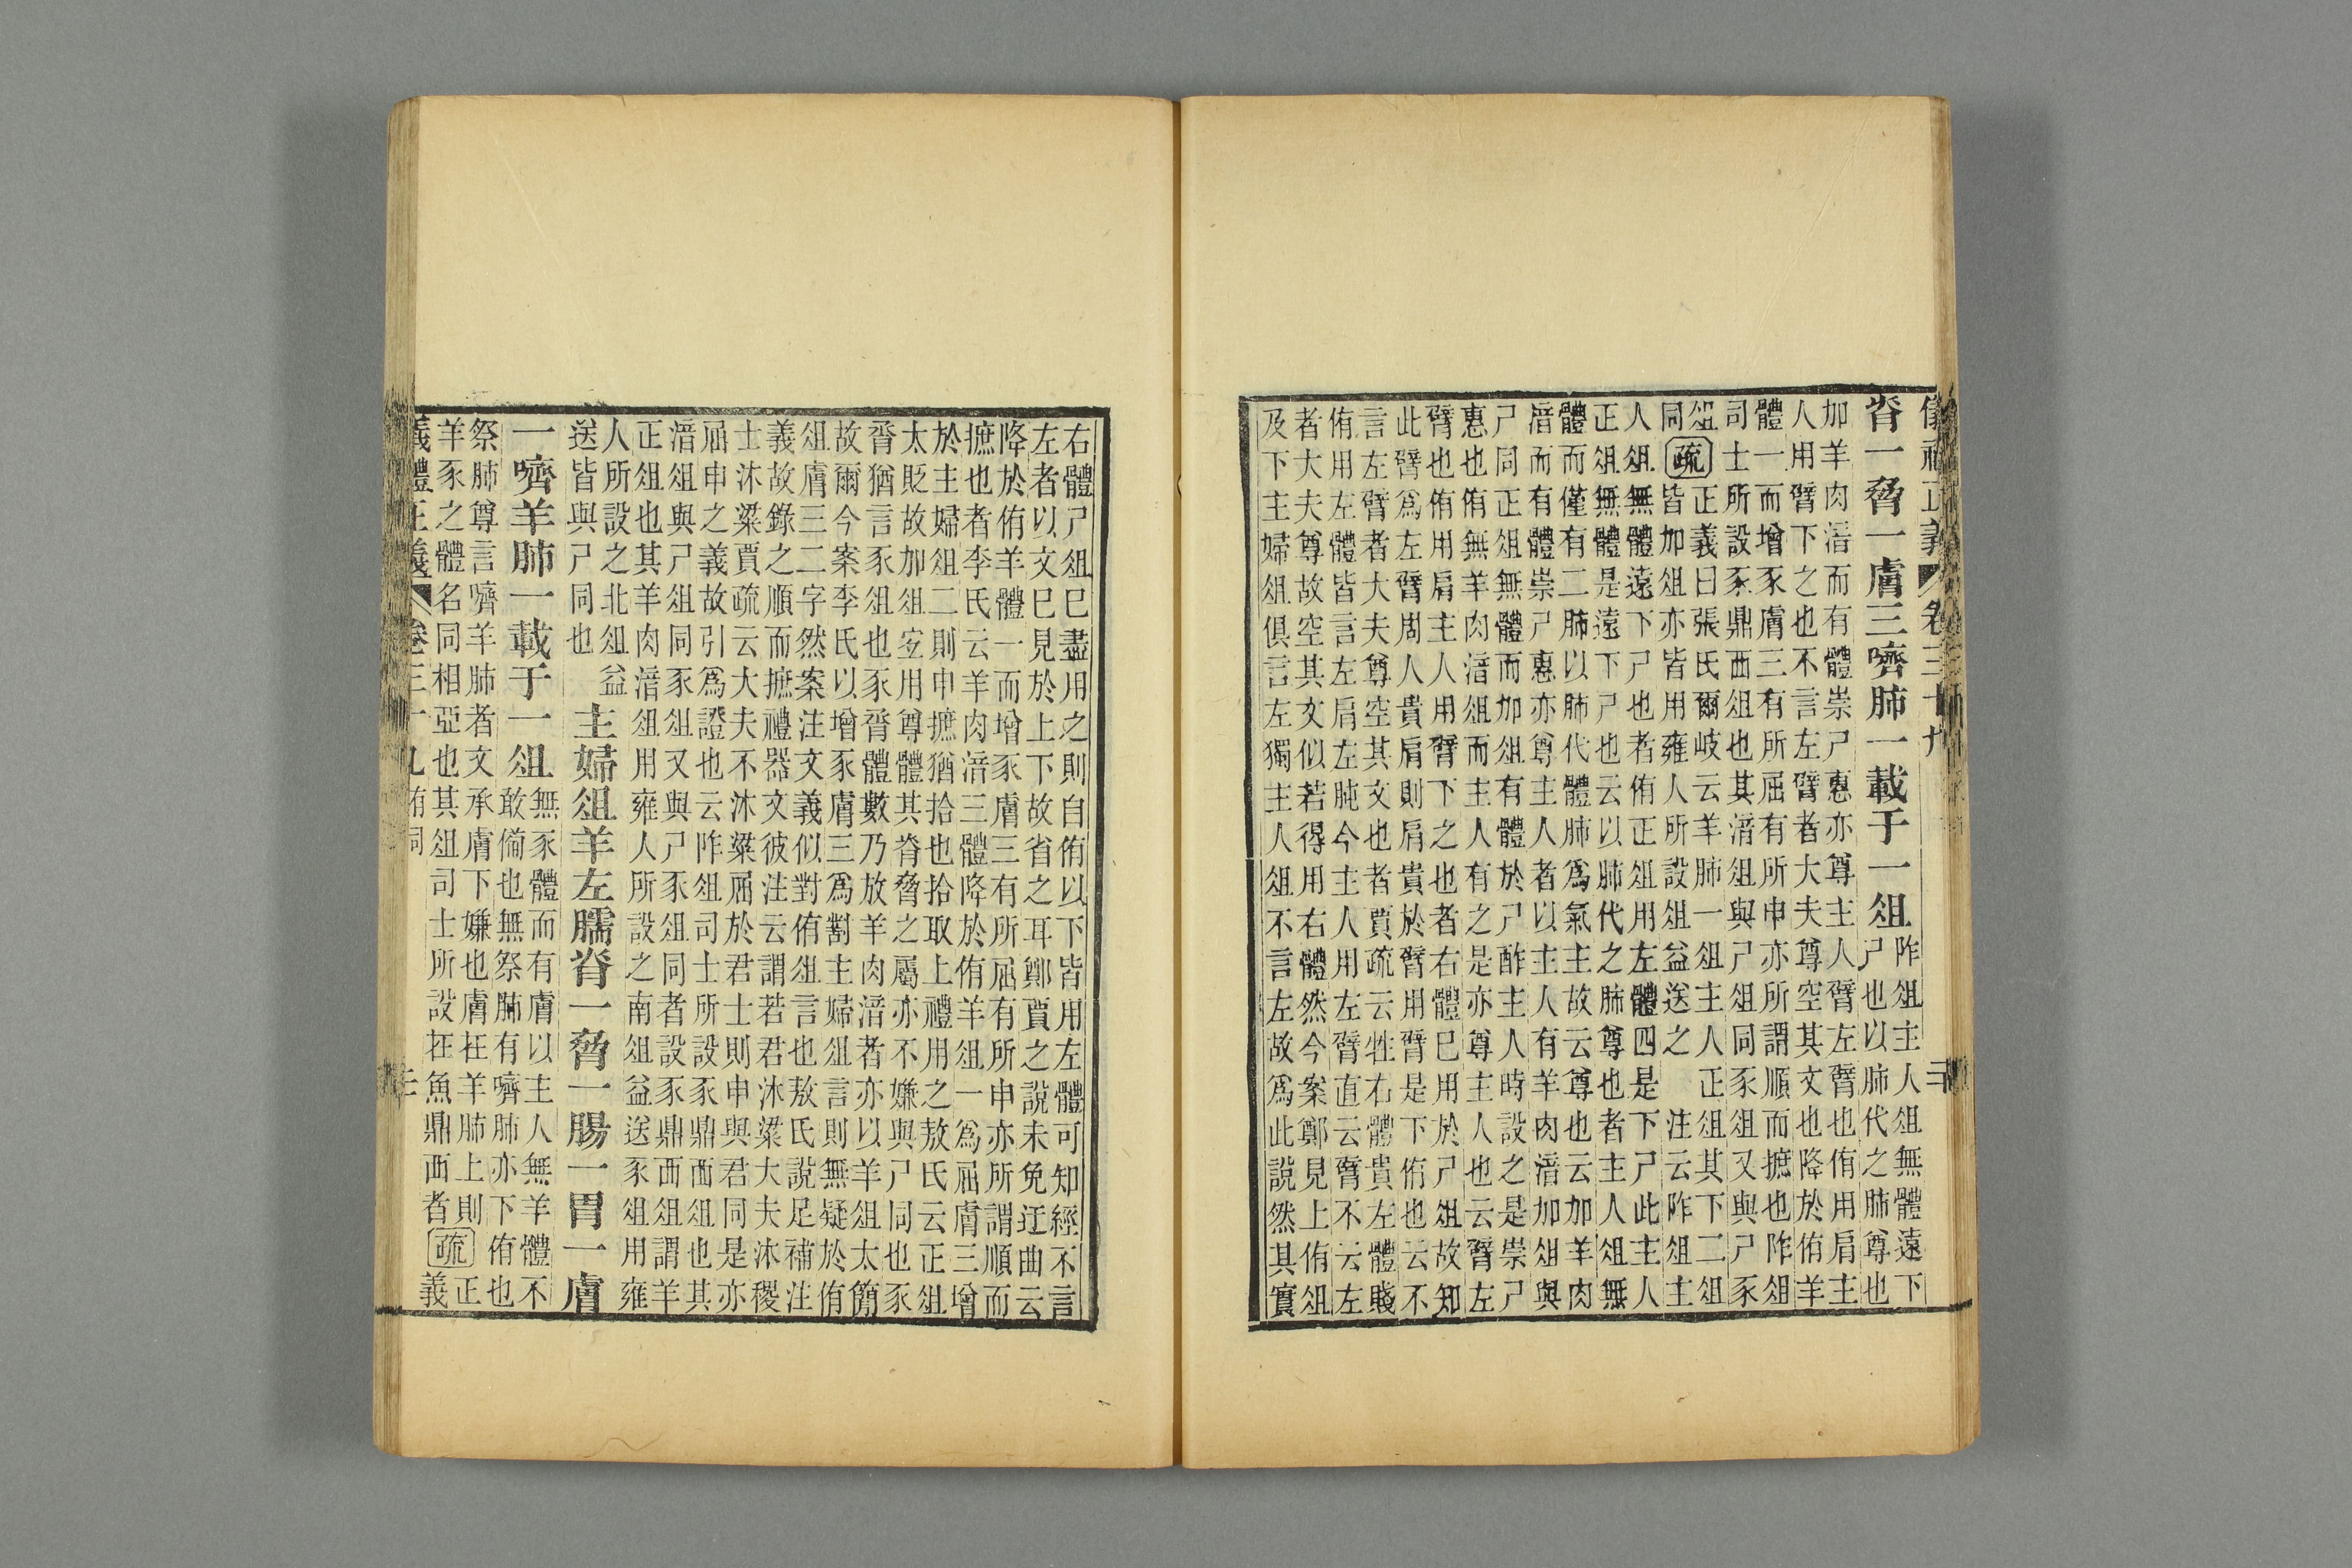 儀禮正義 卷三十九
脊一脅一膚三嚌肺一載于一俎阼俎主人俎無體遠下
尸也以肺代之肺尊也
加羊肉湆而有體崇尸惠亦尊主人臂左臂也侑用肩主
人用臂下之也不言左臂者大夫尊空其文也降於侑羊
體一而增豕膚三有所屈有所申亦所謂順而摭也阼俎
司士所設豕鼎西俎也其湆俎與尸俎同豕俎又與尸豕
俎同疏正義曰張氏爾岐云羊肺一俎主人正俎其下二俎
皆加俎亦皆用雍人所設俎益送之 注云阼俎主
人俎無體遠下尸也者侑正俎用左體四是下尸此主人
正俎無體是遠下尸也云以肺代之肺尊也者主人俎無
體而僅有二肺以肺代體肺爲氣主故云尊也云加羊肉
湆而有體崇尸惠亦尊主人者以主人有羊肉湆加俎與
尸同正俎無體而加俎有體於尸酢主人時設之是崇尸
惠也侑無羊肉湆俎而主人有之是亦尊主人也云臂左
臂也侑用肩主人用臂下之也者右體已用於尸俎故知
此臂爲左臂周人貴肩則肩貴於臂用臂是下侑也云不
言左臂者大夫尊空其文也者賈疏云牲右體貴左體賤
侑用左體皆言左肩左肫今主人用左臂直云臂不云左
者大夫尊故空其文似若得用右體然今案鄭見上侑俎
及下主婦俎俱言左獨主人俎不言左故爲此說然其實
右體尸俎已盡用之則自侑以下皆用左體可知經不言
左者以文已見於上下故省之耳鄭賈之說未免迂曲云
降於侑羊體一而增豕膚三有所屈有所申亦所謂順而
摭也者李氏云羊肉湆三體降於侑羊俎一爲屈膚三增
於主婦俎二則申摭猶拾也拾取上禮用之敖氏云正俎
太貶故加俎宜用尊體其脊脅之屬亦不嫌與尸同也豕
脀猶言豕俎也豕脀體數乃放羊肉湆者亦以羊俎太簡
故爾今案李氏以增豕膚三爲對主婦俎言則無疑於侑
俎膚三二字然案注文義似對侑俎言也敖氏說足補注
義故錄之順而摭禮器文彼注云謂若君沐粱大夫沐稷
士沐粱賈疏云大夫不沐粱屈於君士則申與君同是亦
屈申之義故引爲證也云阼俎司士所設豕鼎西俎也其
湆俎與尸俎同豕俎又與尸豕俎同者設豕鼎西俎謂羊
正俎也其羊肉湆俎用雍人所設之南俎益送豕俎用雍
人所設之北俎益
送皆與尸同也
主婦俎羊左臑脊一脅一腸一胃一膚
一嚌羊肺一載于一俎無豕體而有膚以主人無羊體不
敢備也無祭肺有嚌肺亦下侑也
祭肺尊言嚌羊肺者文承膚下嫌也膚在羊肺上則
羊豕之體名同相亞也其俎司士所設在魚鼎西者疏正
義